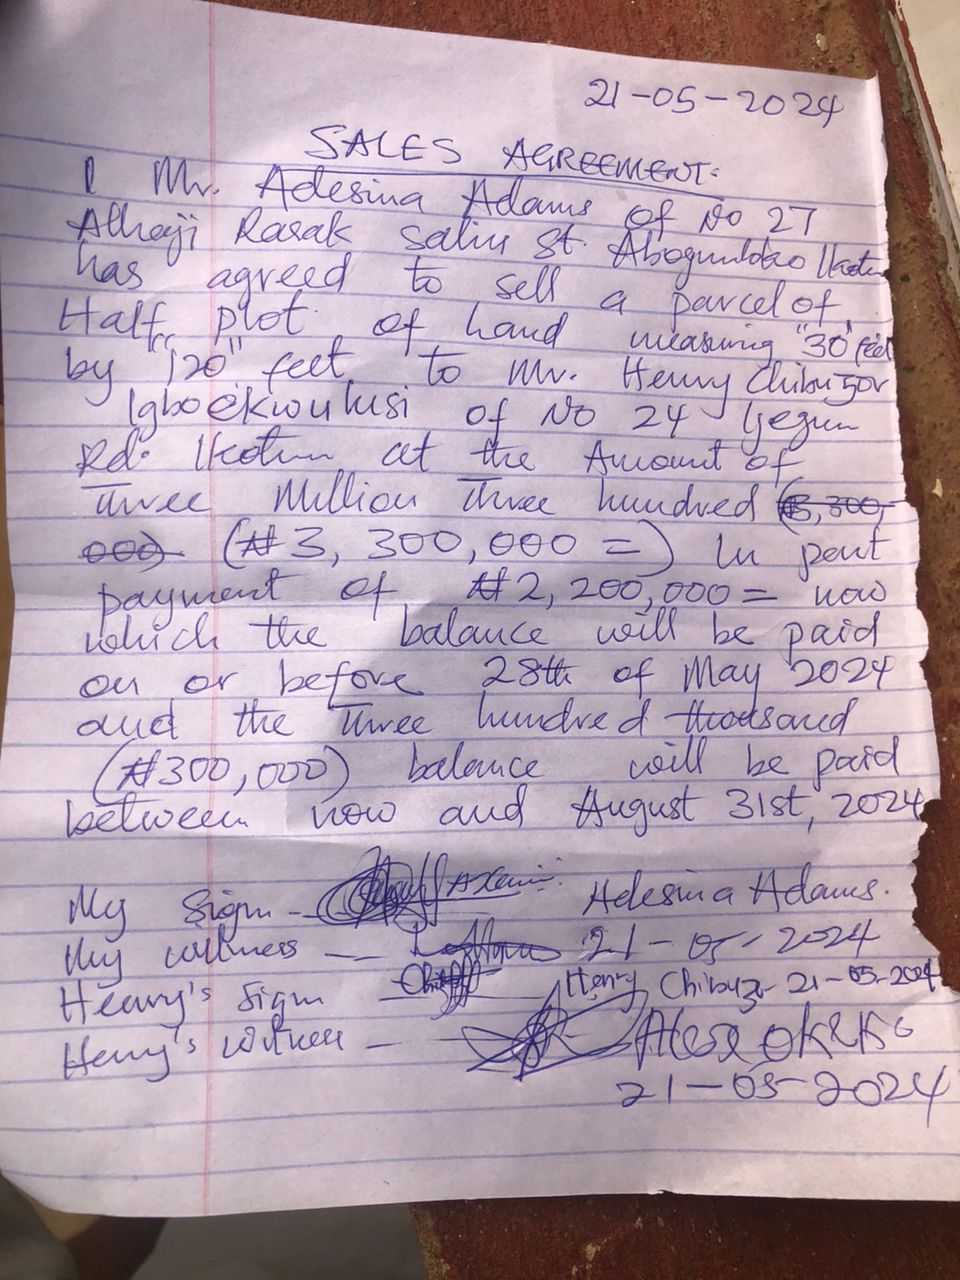 21-05-2024
SALES AGREEMENT.
I Mr. Adesina Adams of No 27
Alhaji Rasak Saliu St. Abogunloko Ikotun
has agreed to sell a parcel of
Half plot of land measuring "30" feet
by "120" feet to Mr. Henry Chibuzor
Igboekwulusi of No 24 Ijegun
Rd. Ikotun at the Amount of
Three Million Three hundred (3,300,
000) (₦3,300,000=) in part
payment of ₦2,200,000= now
which the balance will be paid
on or before 28th of May 2024
and the Three hundred thousand
(₦300,000) balance will be paid
between now and August 31st, 2024
My Sign - Adesina Adams.
My witness - 21-05-2024
Henry's Sign Henry Chibuzor 21-05-2024
Henry's witness - Alex okeke
21-05-2024